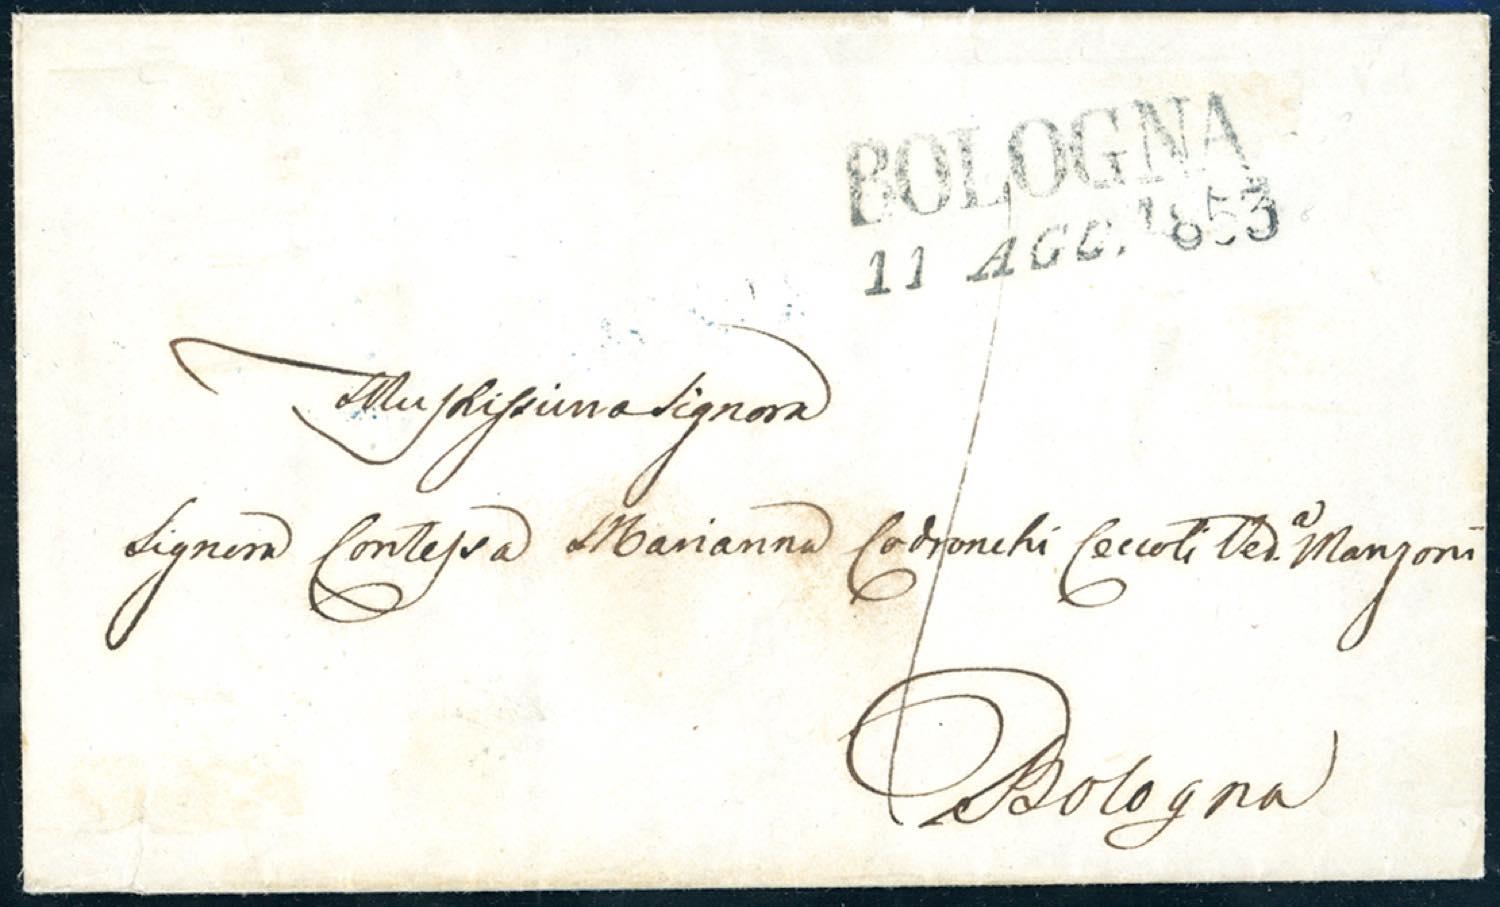 BOLOGNA
11 AGO. 1853
Illustrissima Signora
Signora Contessa Marianna Codronchi Ceccoli Ved.a Manzoni
Bologna